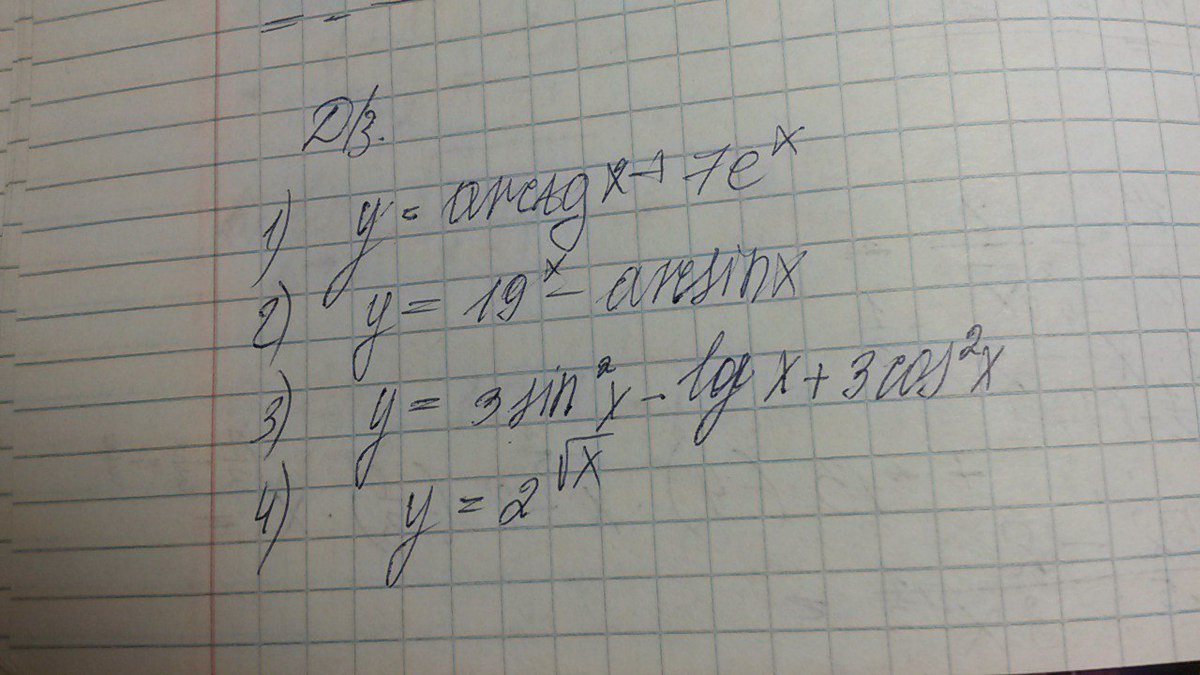 Д/З.
1) y = arctg x + 7e^x
2) y = 19^x - arcsin x
3) y = 3 sin^2 x - lg x + 3 cos^2 x
4) y = 2^√x